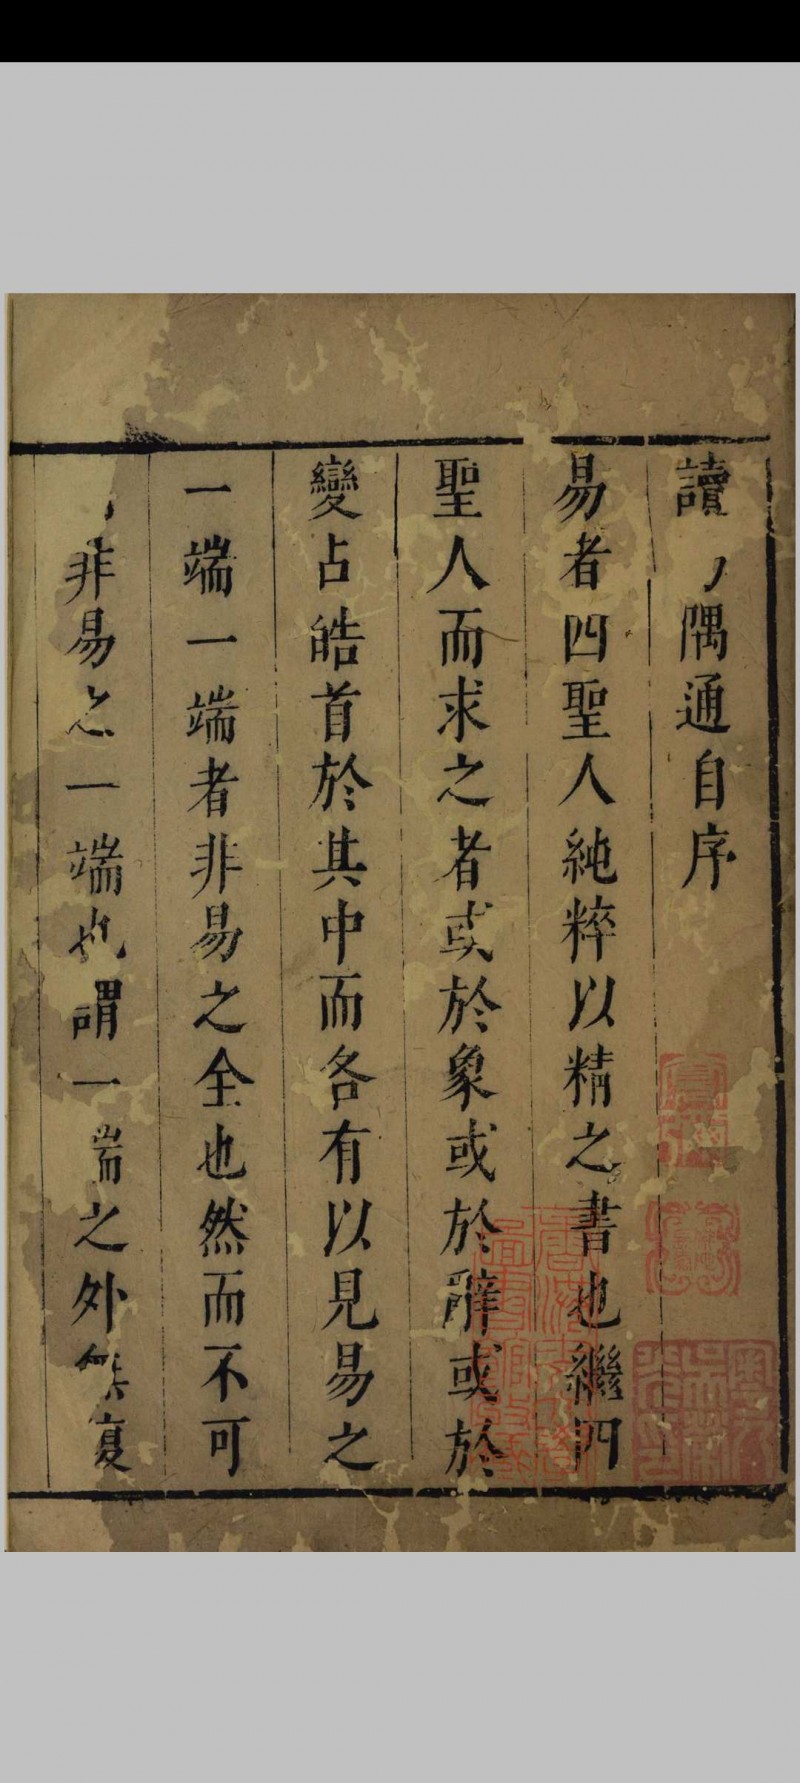 讀 隅通自序
易者四聖人純粹以精之書也繼四
聖人而求之者或於象或於辭或於
變占皓首於其中而各有以見易之
一端一端者非易之全也然而不可
非易之一端也謂一端之外無復